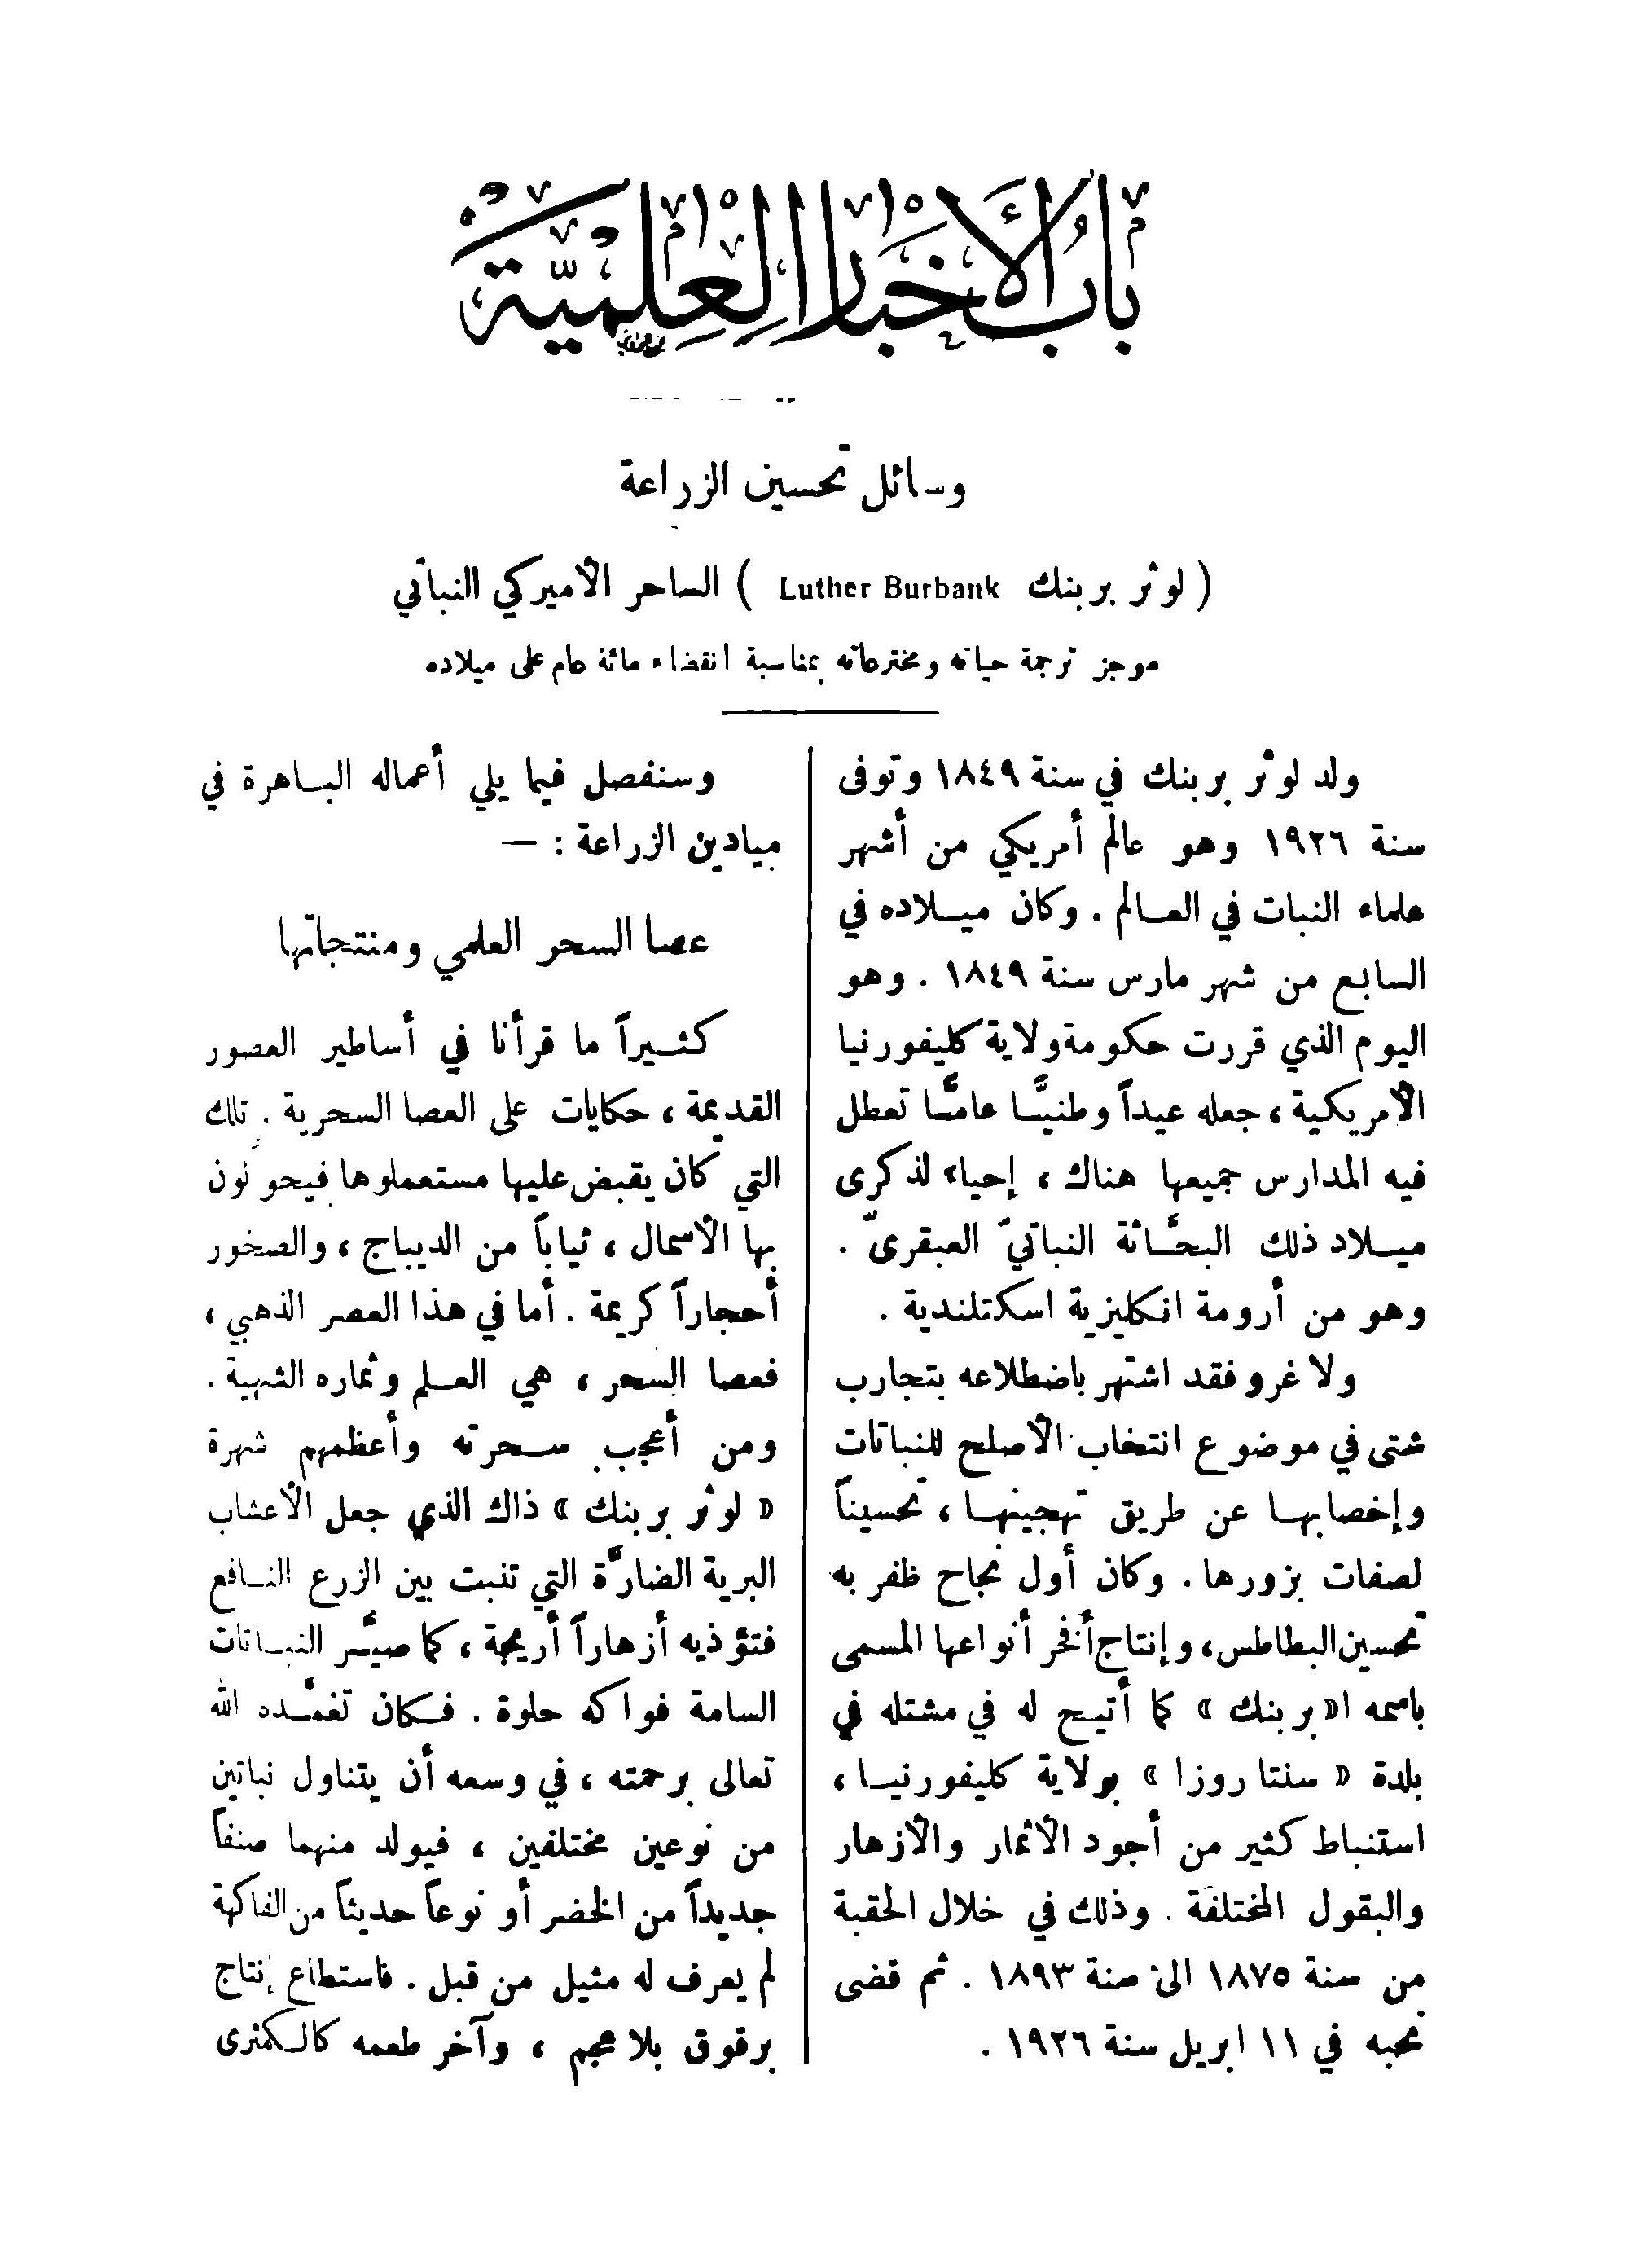 باب الأخبار العلمية
وسائل تحسين الزراعة
( لوثر بربنك Luther Burbank ) الساحر الأميركي النباتي
موجز ترجمة حياته ومخترعاته بمناسبة انقضاء مائة عام على ميلاده
ولد لوثر بربنك في سنة ١٨٤٩ وتوفى
سنة ١٩٢٦ وهو عالم أمريكي من أشهر
علماء النبات في العالم . وكان ميلاده في
السابع من شهر مارس سنة ١٨٤٩ . وهو
اليوم الذي قررت حكومة ولاية كليفورنيا
الأمريكية ، جعله عيداً وطنيًّا عامًّا تعطل
فيه المدارس جميعها هناك ، إحياء لذكرى
ميلاد ذلك البحَّاثة النباتيّ العبقرىّ .
وهو من أرومة انكليزية اسكتلندية .
ولا غرو فقد اشتهر باضطلاعه بتجارب
شتى في موضوع انتخاب الأصلح للنباتات
وإخصابها عن طريق تهجينها ، تحسيناً
لصفات بزورها . وكان أول نجاح ظفر به
تحسين البطاطس ، وإنتاج أفخر أنواعها المسمى
باسمه ا« بربنك » كما أتيح له في مشتله في
بلدة « سنتا روزا » بولاية كليفورنيا ،
استنباط كثير من أجود الأثمار والأزهار
والبقول المختلفة . وذلك في خلال الحقبة
من سنة ١٨٧٥ الى سنة ١٨٩٣ . ثم قضى
نحبه في ١١ ابريل سنة ١٩٢٦ .
وسنفصل فيما يلي أعماله الباهرة في
ميادين الزراعة : —
عصا السحر العلمي ومنتجاتها
كثيراً ما قرأنا في أساطير العصور
القديمة ، حكايات على العصا السحرية . تلك
التي كان يقبض عليها مستعملوها فيحوِّلون
بها الأسمال ، ثياباً من الديباج ، والصخور
أحجاراً كريمة . أما في هذا العصر الذهبي ،
فعصا السحر ، هي العلم وثماره الشهية .
ومن أعجب سحرته وأعظمهم شهرة
« لوثر بربنك » ذاك الذي جعل الأعشاب
البرية الضارَّة التي تنبت بين الزرع النافع
فتؤذيه أزهاراً أريجة ، كما صيَّر النباتات
السامة فواكه حلوة . فكان تغمَّده الله
تعالى برحمته ، في وسعه أن يتناول نباتين
من نوعين مختلفين ، فيولد منهما صنفاً
جديداً من الخضر أو نوعاً حديثاً من الفاكهة
لم يعرف له مثيل من قبل . فاستطاع إنتاج
برقوق بلا عجم ، وآخر طعمه كالكمثرى